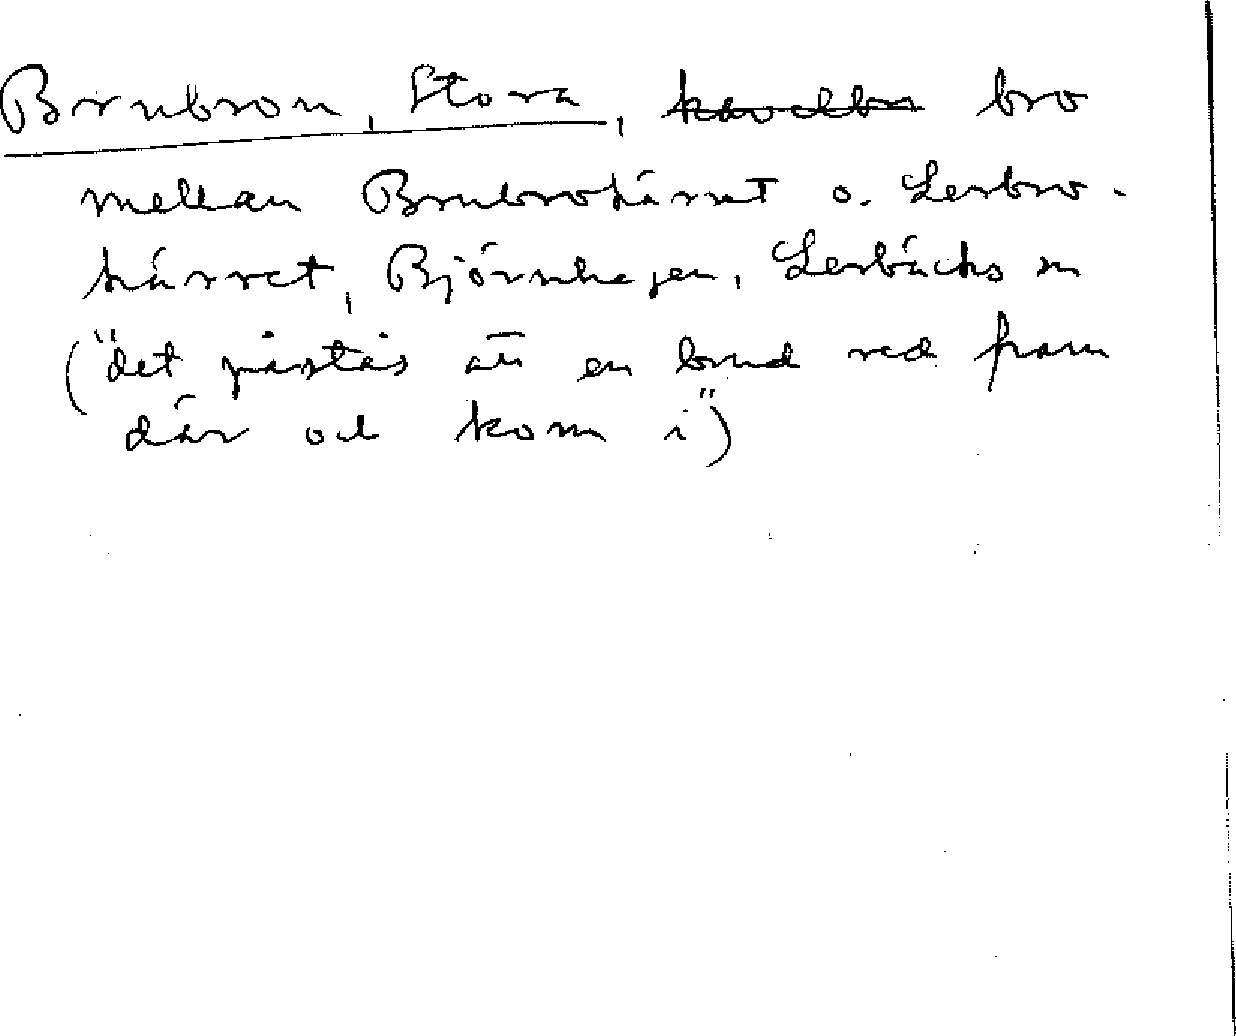 Brubron, Stora, kavelbro bro
mellan Brubrokärret o. Lerbro-
kärret, Björnhagen, Lerbäcks sn
("det påstås att en brud red fram
där och kom i")